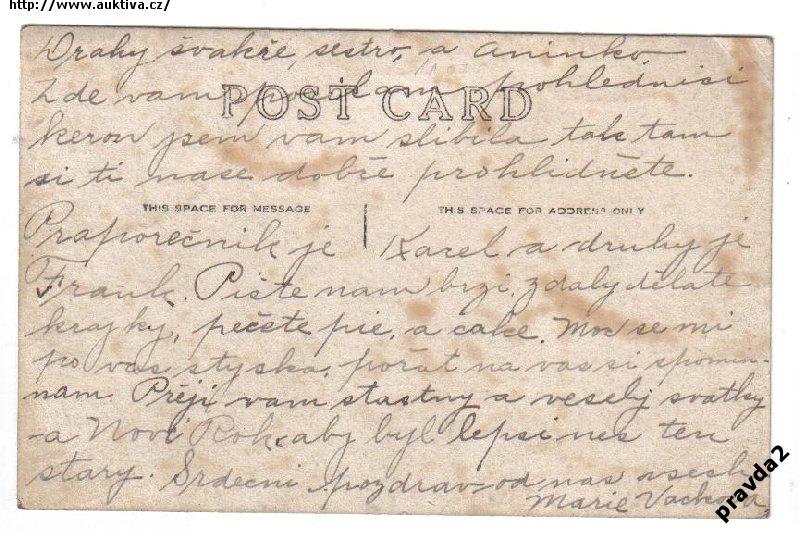 http://www.auktiva.cz/
Drahy švakře, sestro, a Aninko
Zde vam posilam pohlednisi
keron jsem vam slibila tak tam
si ti nase dobře prohlidněte.
POST CARD
THIS SPACE FOR MESSAGE
THIS SPACE FOR ADDRESS ONLY
Praporečnik je Karel a druhy je
Frank. Pište nam brzi, zdaly dělate
krajky, pečete pie, a cake. Moc se mi
po vas styska, pořat na vas si spomin-
nam. Přeji vam stastny a vesely svatky
a Novi Rok, aby byl lepsi nes ten
stary. Srdečni pozdrav od nas vsech
Marie Vackova
pravda2